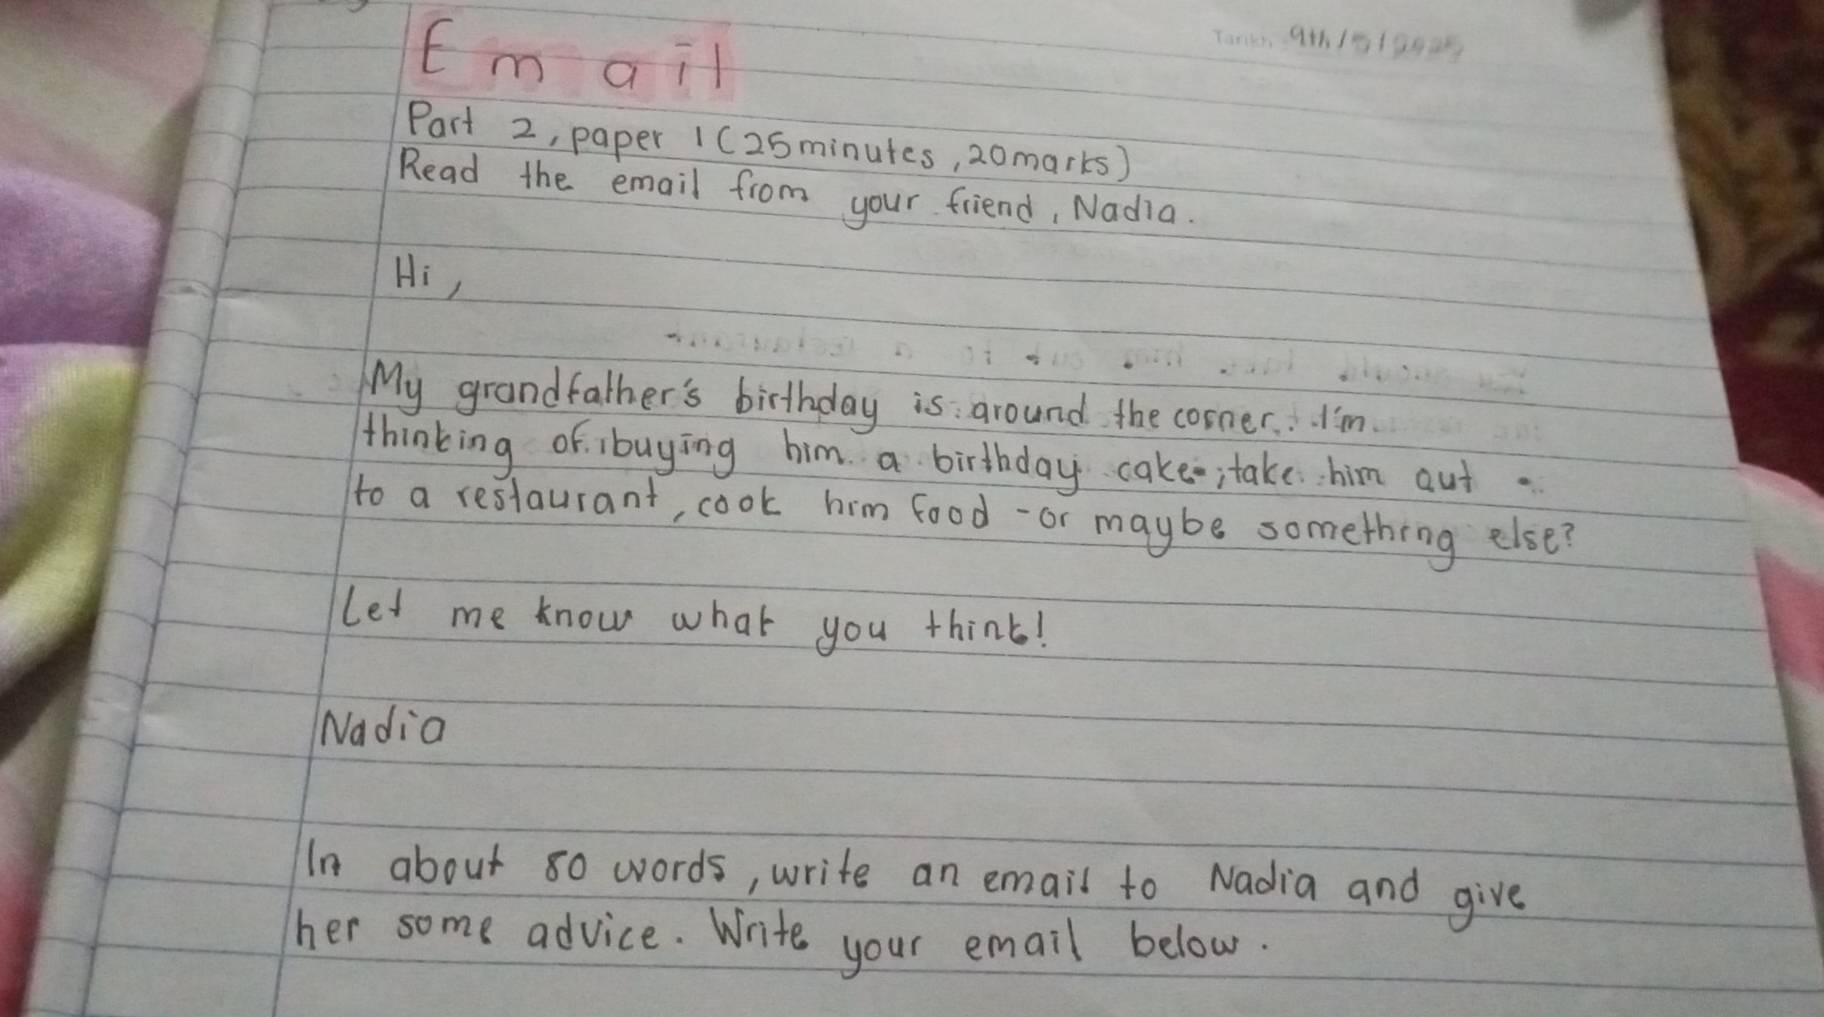 Email
Tarikh: 9th/5/2025
Part 2, paper 1 (25minutes, 20marks)
Read the email from your friend, Nadia.
Hi,
My grandfather's birthday is around the corner. I'm
thinking of buying him a birthday cake, take him out
to a restaurant, cook him food - or maybe something else?
Let me know what you think!
Nadia
In about 80 words, write an email to Nadia and give
her some advice. Write your email below.